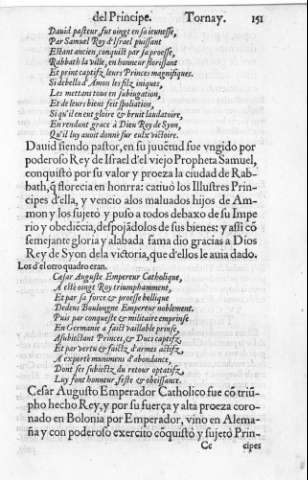 del Principe. Tornay. 151
Dauid pasteur fut oingt en sa ieunesse,
Par Samuel Roy d'Israel puissant
Estant ancien, conquist par sa proesse,
Rabbath la ville, en honneur florissant
Et print captifz, leurs Princes magnifiques.
Si debella d'Amon les filz iniques,
Les mettant tous en subiugation,
Et de leurs biens feit spoliation,
Si qu'il en eut gloire & bruit laudatoire,
En rendant grace à Dieu Roy de Syon,
Qu'il luy auoit donné sur eulx victoire.
Dauid siendo pastor, en su juuētud fue vngido por
poderoso Rey de Israel d'el viejo Propheta Samuel,
conquistò por su valor y proeza la ciudad de Rab-
bath, q̃ florecia en honrra: catiuò los Illustres Prin-
cipes d'ella, y vencio alos maluados hijos de Am-
mon y los sujetò y puso a todos debaxo de su Impe
rio y obediēcia, despojādolos de sus bienes: y assi cō
semejante gloria y alabada fama dio gracias a Dios
Rey de Syon dela victoria, que d'ellos le auia dado.
Los d'el otro quadro eran.
Cesar Auguste Empereur Catholique,
A esté oingt Roy triumphamment,
Et par sa force & proesse bellique
Dedens Boulongne Empereur noblement.
Puis par conqueste & militaire emprinse
En Germanie a faict vaillable prinse,
Asubiectant Princes, & Ducs captifz,
Et par vertu & faictz d'armes actifz,
A exporté munimens d'abondance,
Dont ses subiectz, du retour optatifz,
Luy font honneur, feste & obeissance.
Cesar Augusto Emperador Catholico fue cō triū-
pho hecho Rey, y por su fuerça y alta proeza coro-
nado en Bolonia por Emperador, vino en Alema-
ña y con poderoso exercito cōquistò y sujetò Prin-
Cc cipes